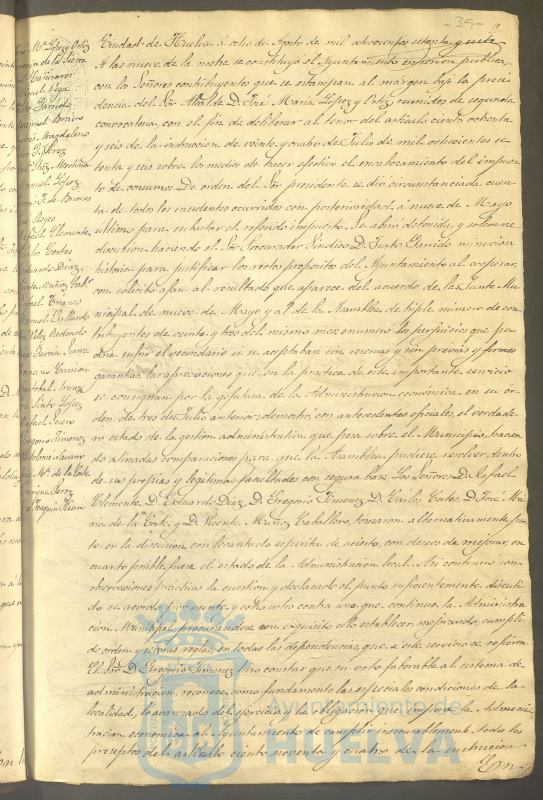 -39-
Ciudad de Huelva á ocho de Agosto de mil ochocientos setenta y siete
A las nueve de la noche se constituyó el Ayuntamiento en sesion publica,
con los Señores contribuyentes que se estampan al margen bajo la presi
dencia del Sor. Alcalde D. José Maria Lopez y Ortiz, reunidos de segunda
convocatoria con el fin de deliberar al tenor del articulo ciento ochenta
y seis de la instruccion de veinte y cuatro de Julio de mil ochocientos se
tenta y seis sobre los medios de hacer efectivo el encabezamiento del impues
to de consumos. De orden del Sor. presidente se dió circunstanciada cuen
ta de todos los incidentes ocurridos con posterioridad á nueve de Mayo
ultimo para subastar el referido impuesto. Se abrió detenida y solemne
discusion haciendo el Sor. Procurador Sindico D. Justo Garrido minuciosa
historia para justificar los rectos propositos del Ayuntamiento al cooperar
con solicito afan al resultado que aparece del acuerdo de la Junta Mu
nicipal de nueve de Mayo y al de la Asamblea de triple número de con
tribuyentes de veinte y tres del mismo mes, enumeró los perjuicios que po
dria sufrir el vecindario si se aceptaban sin reservas y sin previas y formales
garantias, las apreciaciones que en la practica de este importante servicio
se consignan por la gefatura de la Administracion económica en su or
den de tres de Julio anterior: demostró, con antecedentes oficiales, el verdade
ro estado de la gestion administrativa que pesa sobre el Municipio, hacien
do atinadas comparaciones para que la Asamblea pudiese resolver dentro
de sus propias y legitimas facultades con segura base. Los Señores D. Rafael
Clemente, D. Eduardo Diaz, D. Gregorio Jimenez, D. Carlos Cortes, D. José Ma
ria de la Corte y D. Vicente Muñoz Caballero, tomaron alternativamente par
te en la discusion con levantado espiritu de acierto, con deseo de mejorar, en
cuanto posible fuese el estado de la Administracion local. Asi continuó con
observaciones prácticas la cuestion y declarado el punto suficientemente discuti
do se acordó por veinte y ocho votos contra uno que continue la Administra
cion Municipal procurandose con esquisito celo establecer, mejorando, cumpli
do orden y severas reglas, en todas las dependencias, que á este servicio se refieren.
El Sor. D. Gregorio Jimenez hizo constar que su voto favorable al sistema de
administracion, reconoce, como fundamento las especiales condiciones de la
localidad, lo avanzado del ejercicio y la obligacion que impone la Adminis
tracion economica al Ayuntamiento de cumplir inescusablemente todos los
preceptos del articulo ciento noventa y cuatro de la instruccion
Lopez Ortiz
Bravo
Magdaleno
Perez
Medina
Lopez
Reyes
Clemente
Carlos Cortes
Eduardo Diaz
Vicente Muñoz Cab.
Franco
Gallardo
Redondo
Garcia
Carrion
Justo Lopez
Gregorio Jimenez
Ma. de la Corte
Perez
Ayuntamiento de
HUELVA